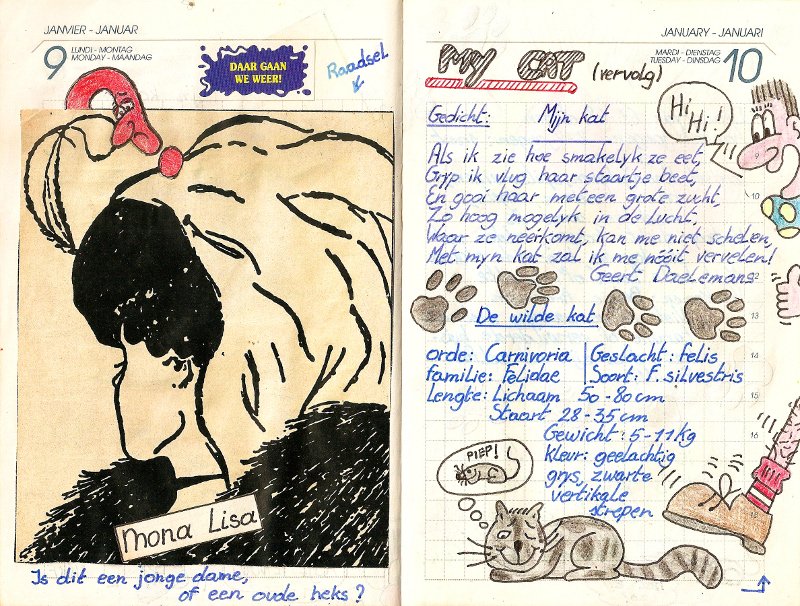 JANVIER - JANUAR
9
LUNDI - MONTAG
MONDAY - MAANDAG
DAAR GAAN
WE WEER!
Raadsel
Mona Lisa
Is dit een jonge dame,
of een oude heks?
JANUARY - JANUARI
MARDI - DIENSTAG
TUESDAY - DINSDAG
10
MY CAT (vervolg)
Hi
Hi!
Gedicht: Mijn kat
Als ik zie hoe smakelyk ze eet,
Gryp ik vlug haar staartje beet,
En gooi haar met een grote zucht,
Zo hoog mogelyk in de lucht,
Waar ze neerkomt, kan me niet schelen,
Met myn kat zal ik me nóóit vervelen!
Geert Daelemans
9
10
12
13
14
15
16
De wilde kat
orde: Carnivoria
Geslacht: Felis
familie: Felidae
Soort: F. silvestris
Lengte: Lichaam 50-80cm
Staart 28-35cm
Gewicht: 5-11kg
kleur: geelachtig
grys, zwarte
vertikale
strepen
PIEP!